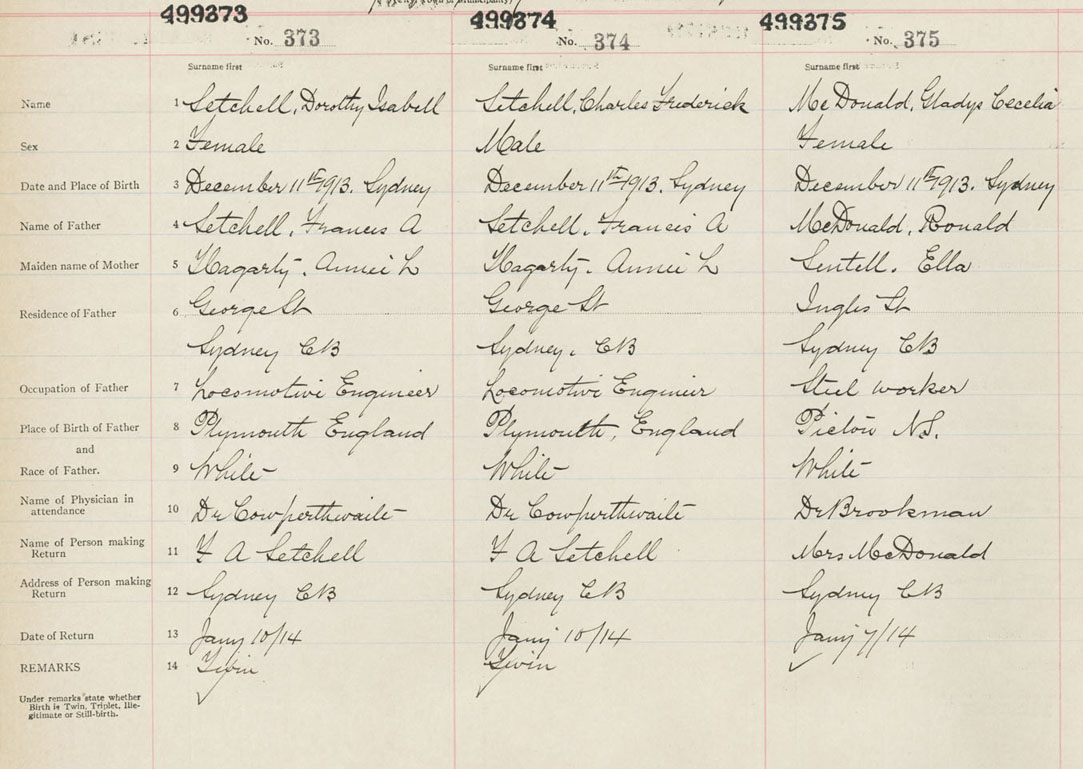 499373 499374 499375
No. 373 No. 374 No. 375
Surname first Surname first Surname first
Name 1 Setchell, Dorothy Isabell Setchell, Charles Frederick McDonald, Gladys Cecelia
Sex 2 Female Male Female
Date and Place of Birth 3 December 11th 1913. Sydney December 11th 1913. Sydney December 11th 1913. Sydney
Name of Father 4 Setchell, Francis A Setchell, Francis A McDonald, Ronald
Maiden name of Mother 5 Hagarty, Annie L Hagarty, Annie L Sentell. Ella
Residence of Father 6 George St George St Ingles St
Sydney CB Sydney, CB Sydney CB
Occupation of Father 7 Locomotive Engineer Locomotive Engineer Steel worker
Place of Birth of Father 8 Plymouth England Plymouth, England Pictou N.S.
and
Race of Father. 9 White White White
Name of Physician in
attendance 10 Dr Cowperthwaite Dr Cowperthwaite Dr Brookman
Name of Person making
Return 11 F A Setchell F A Setchell Mrs McDonald
Address of Person making
Return 12 Sydney CB Sydney CB Sydney CB
Date of Return 13 Jany 10/14 Jany 10/14 Jany 7/14
REMARKS 14 Twin Twin
Under remarks state whether
Birth is Twin, Triplet, Ille-
gitimate or Still-birth.